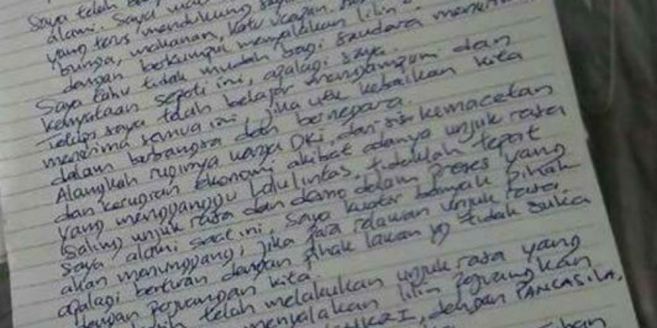 Saya telah
alami. Saya
yang terus mendukung
bunga, makanan, kartu ucapan,
dengan berkumpul menyalakan lilin
Saya tahu tidak mudah bagi saudara menerima
kenyataan seperti ini, apalagi saya.
Tetapi saya telah belajar mengampuni dan
menerima semua ini, jika utk kebaikan kita
dalam berbangsa dan bernegara.
Alangkah ruginya warga DKI, dari sisi kemacetan
dan kerugian ekonomi akibat adanya unjuk rasa
yang mengganggu lalu lintas. tidaklah tepat
saling unjuk rasa dan demo dalam proses yang
saya alami saat ini, saya kuatir banyak pihak
akan menunggangi, jika para relawan unjuk rasa.
apalagi benturan dengan pihak lawan yg tidak suka
dengan perjuangan kita!
telah melakukan unjuk rasa yang
menyalakan lilin perjuangkan
NKRI, dengan PANCASILA,